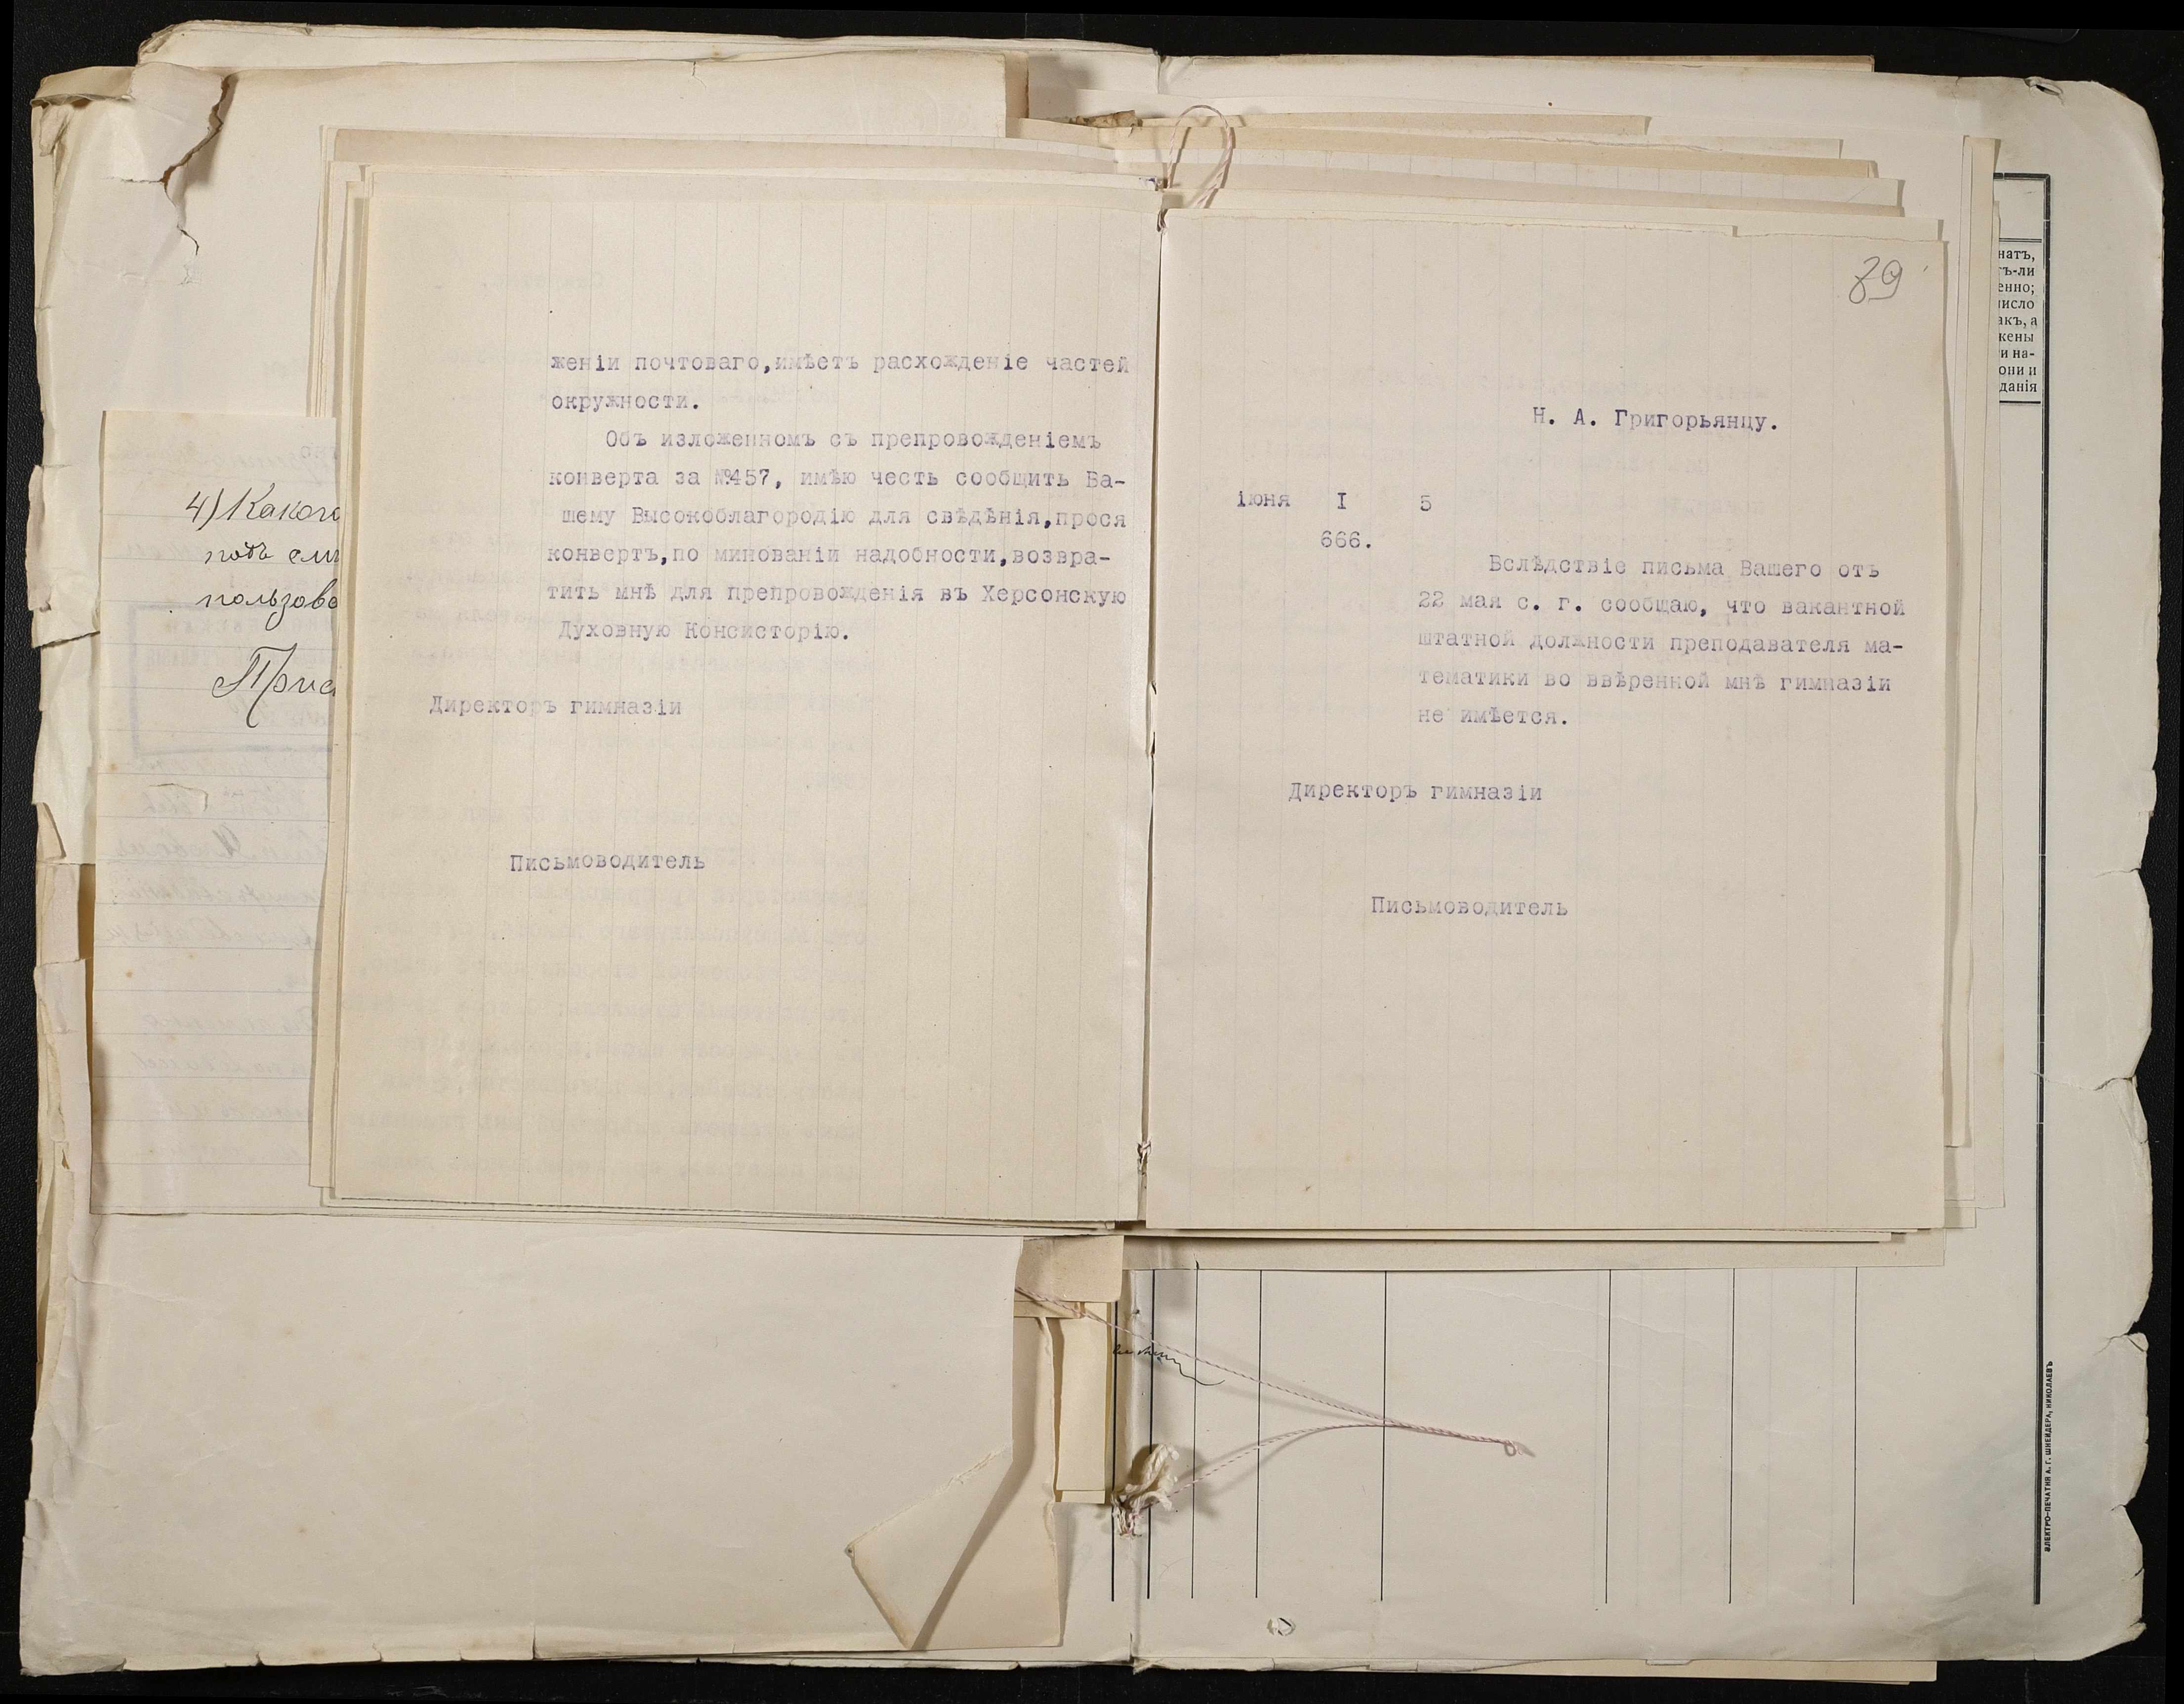 4) Каког
подъ
пользова
женіи почтоваго,имѣетъ расхожденіе частей
окружности.
Объ изложенномъ съ препровожденіемъ
конверта за №457, имѣю честь сообщить Ва-
шему Высокоблагородію для свѣдѣнія,прося
конвертъ,по минованіи надобности,возвра-
тить мнѣ для препровожденія въ Херсонскую
Духовную Консисторію.
Директоръ гимназіи
Письмоводитель
89
Н. А. Григорьянцу.
іюня I 5
666.
Вслѣдствіе письма Вашего отъ
22 мая с. г. сообщаю, что вакантной
штатной должности преподавателя ма-
тематики во ввѣренной мнѣ гимназіи
не имѣется.
Директоръ гимназіи
Письмоводитель
натъ,
ъ-ли
енно;
число
акъ, а
жены
и на-
они и
данія
ЭЛЕКТРО-ПЕЧАТНЯ А. Г. ШНЕЙДЕРА, НИКОЛАЕВЪ